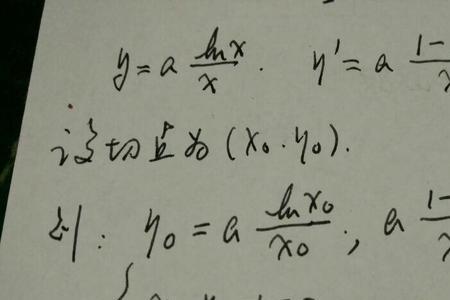 y = a lnx/x . y' = a 1-
设切点为(x₀.y₀).
则: y₀ = a lnx₀/x₀ ; a 1-